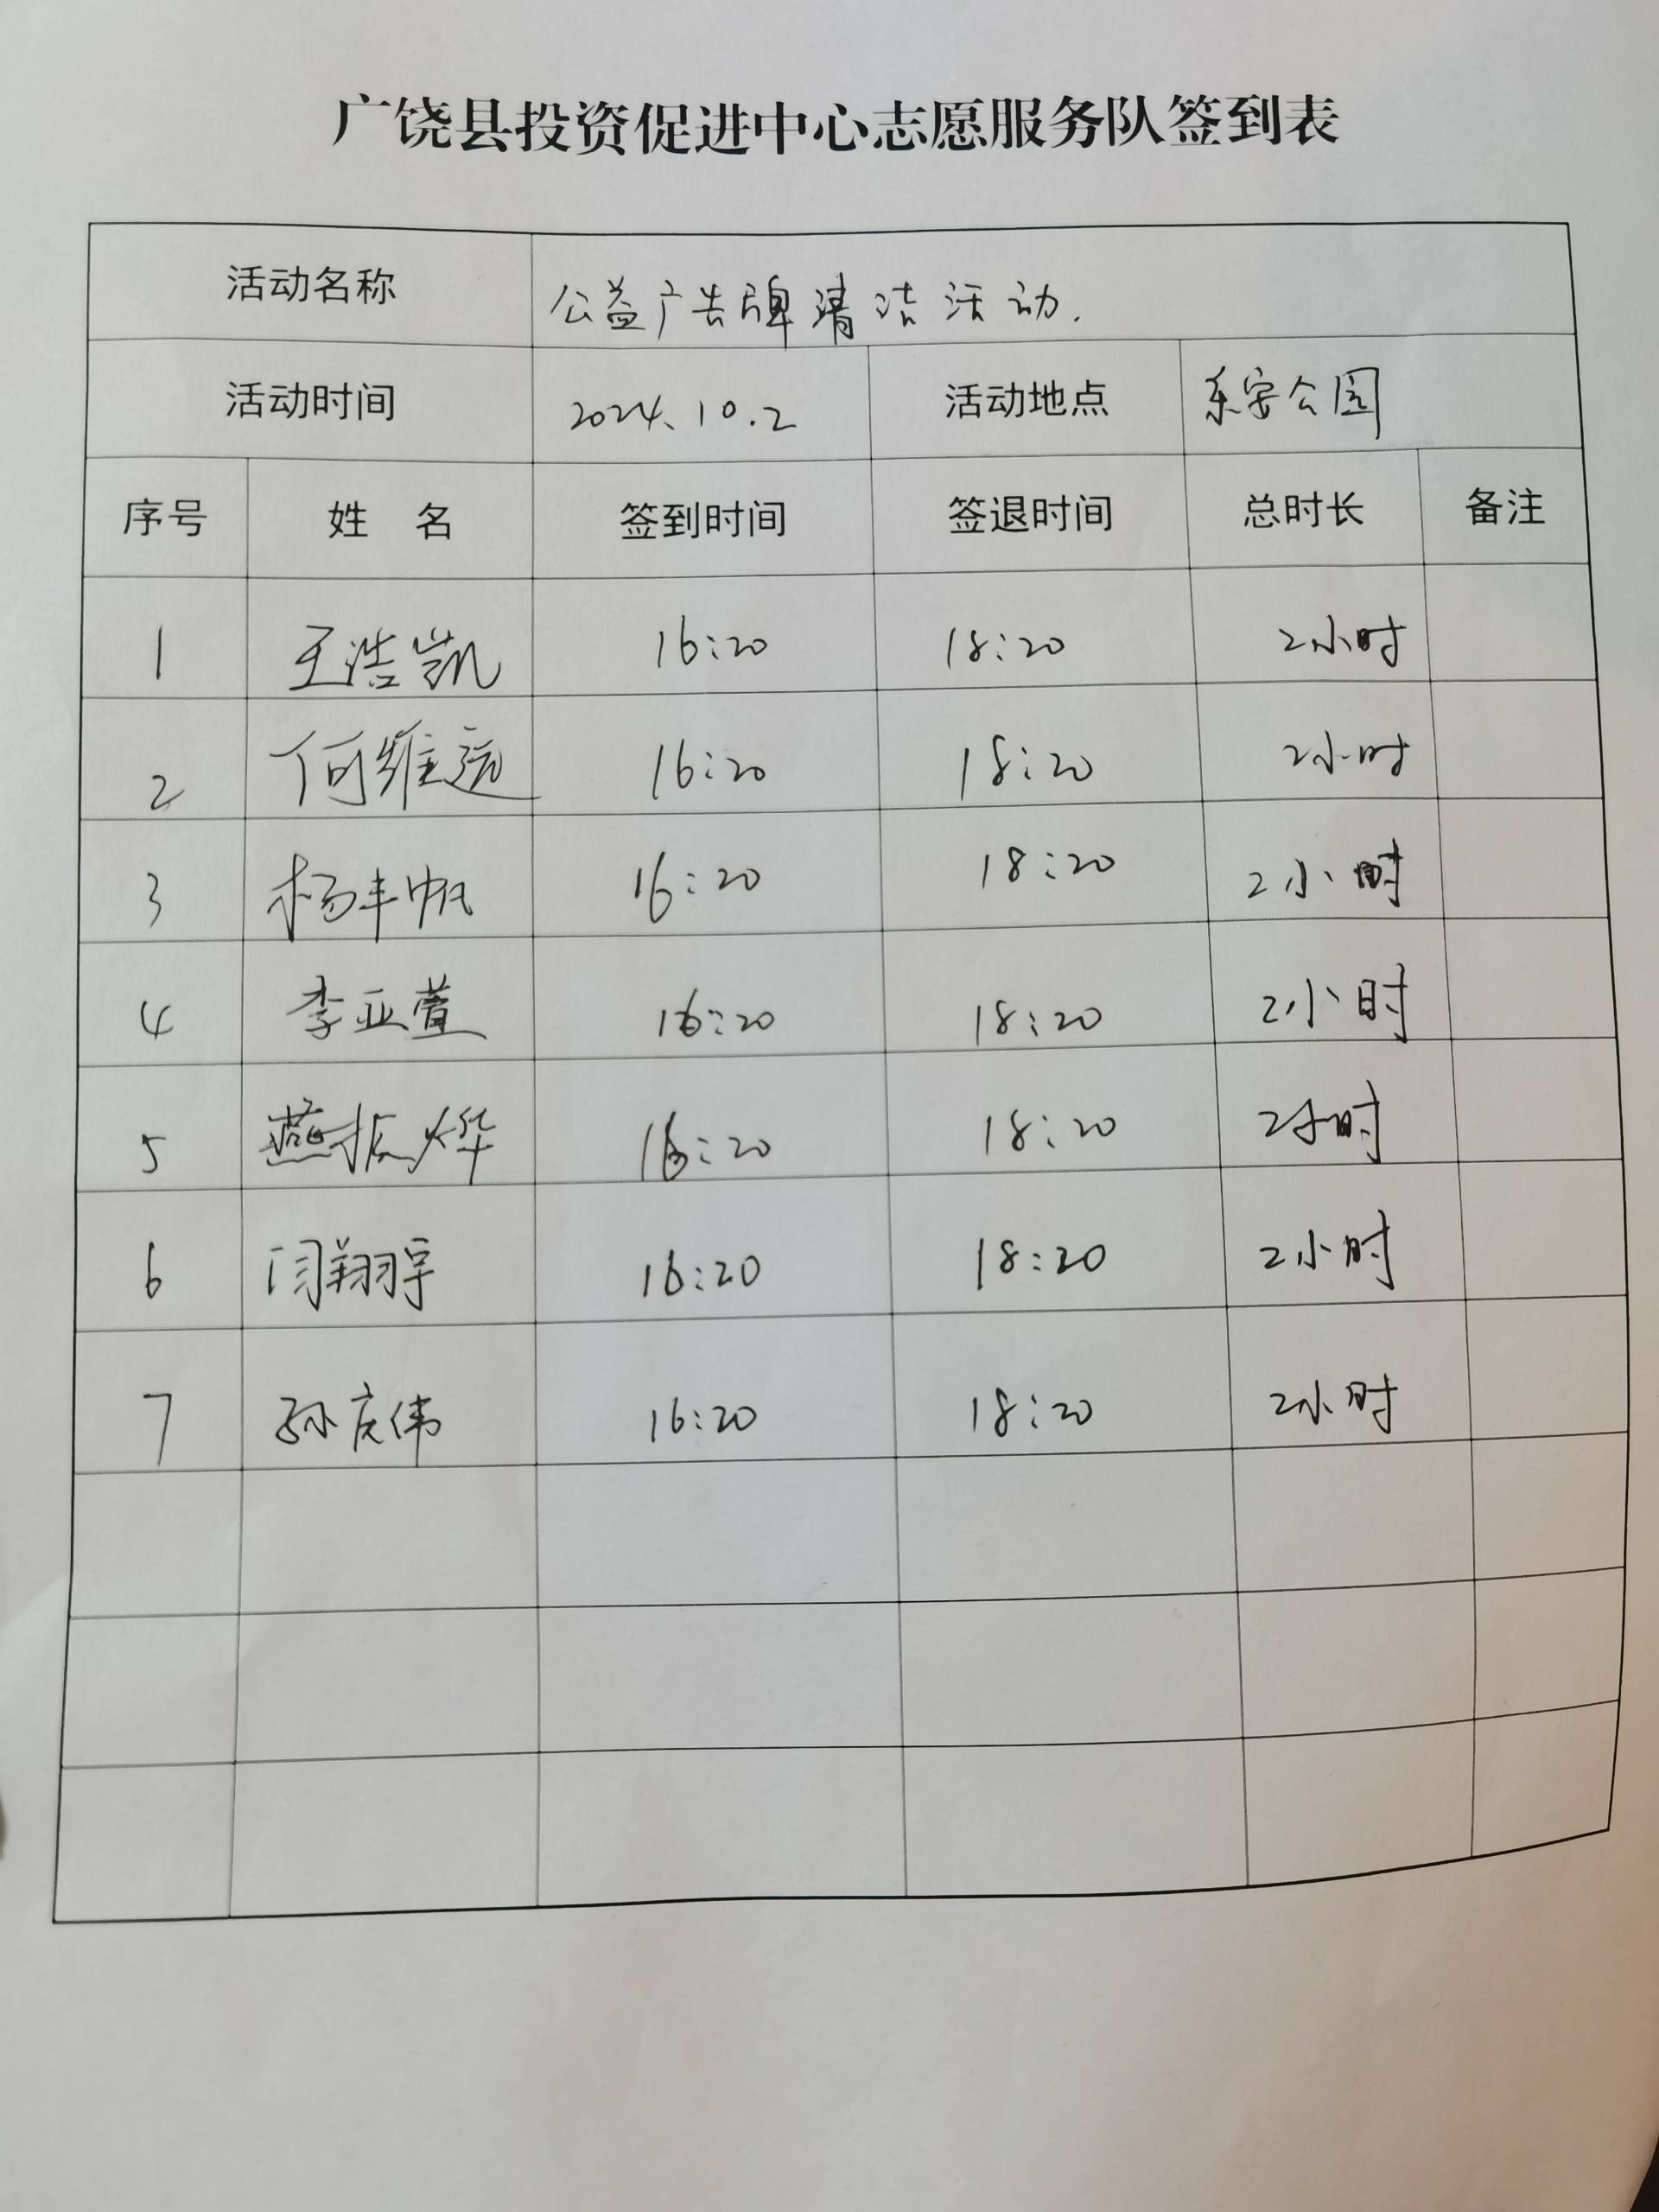 广饶县投资促进中心志愿服务队签到表
活动名称 公益广告牌清洁活动.
活动时间 2024.10.2 活动地点 乐安公园
序号 姓 名 签到时间 签退时间 总时长 备注
1 王浩凯 16:20 18:20 2小时
2 何维远 16:20 18:20 2小时
3 杨丰帆 16:20 18:20 2小时
4 李亚萱 16:20 18:20 2小时
5 燕振烨 16:20 18:20 2小时
6 闫翔宇 16:20 18:20 2小时
7 孙庆伟 16:20 18:20 2小时